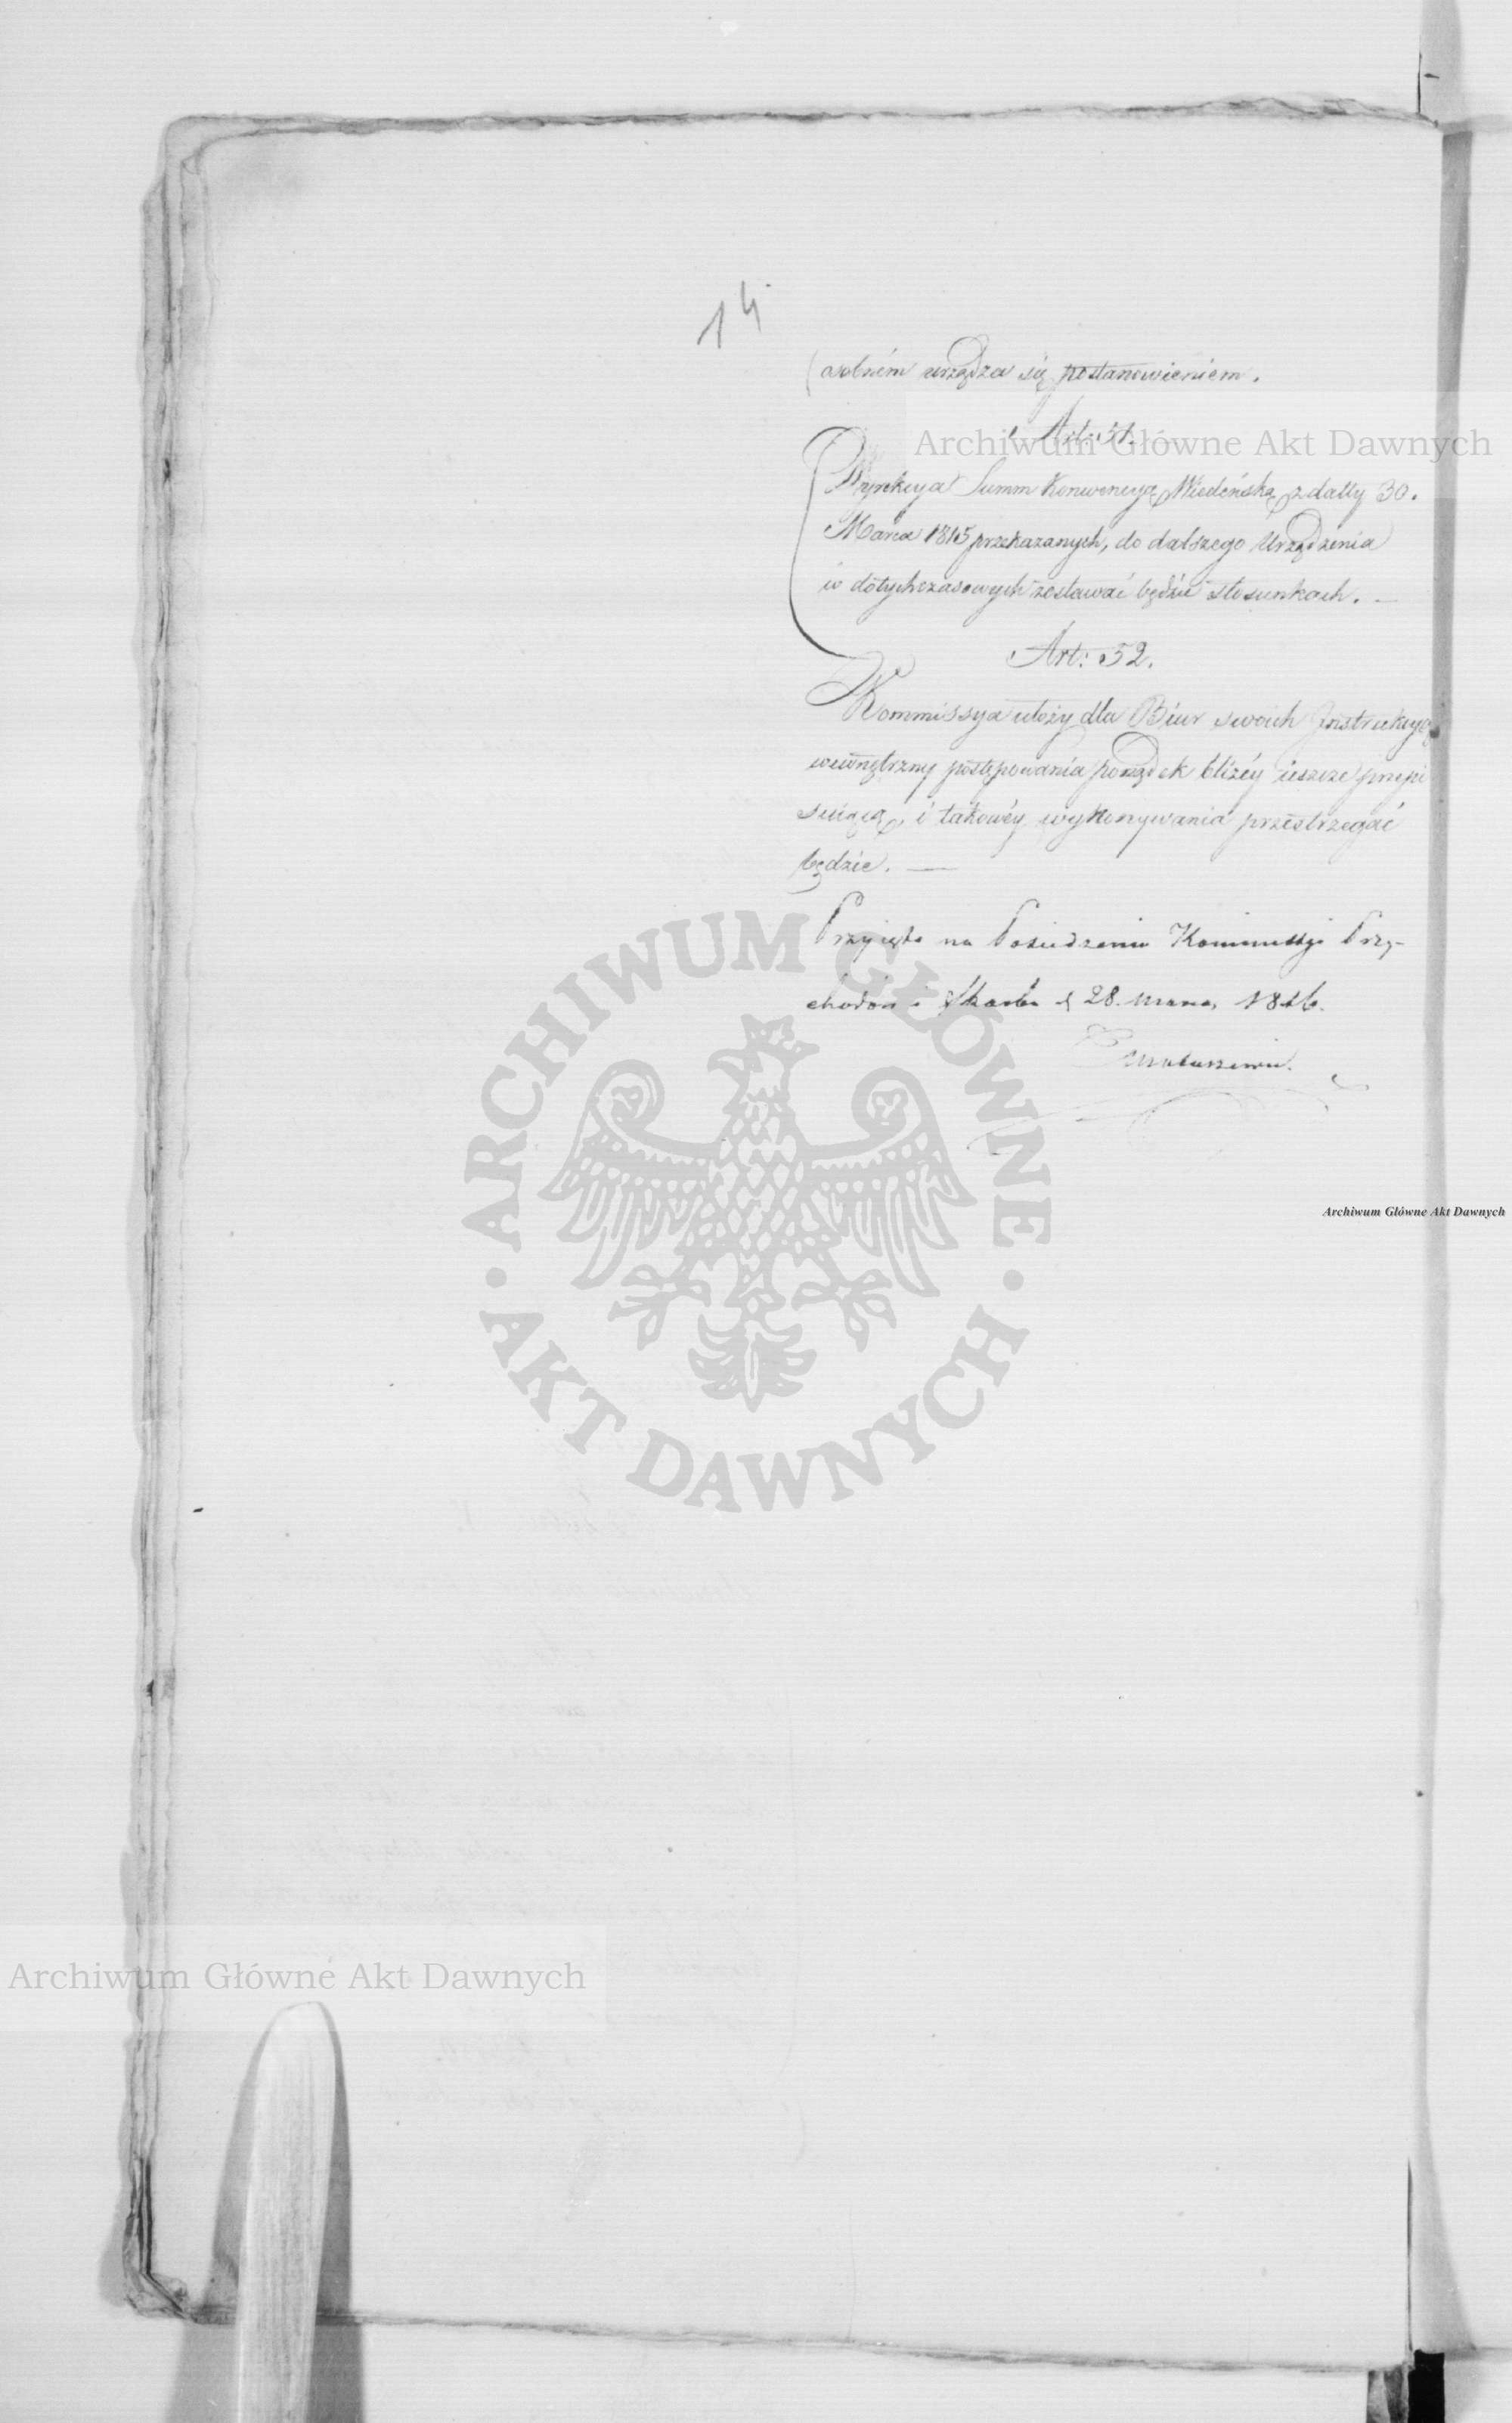 14
osobném urządza się postanowieniem.
Art: 51.
Dyrekcya Summ Konwencyą Wiedeńską z datty 30.
Marca 1815 przekazanych, do dalszego Urządzenia
w dotychczasowych zostawać będzie stosunkach. —
Art: 52.
Kommissya ułoży dla Biur swoich Jnstrukcyą
wewnętrzny postępowania porządek bliżéy ieszcze przepi
suiącą, i takowéy wykonywania przestrzegać
będzie. —
Przyięto na Posiedzeniu Kommissyi Przy-
chodów i Skarbu d 28. Marca, 1816.
Matuszewic.
Archiwum Główne Akt Dawnych
Archiwum Główne Akt Dawnych
Archiwum Główne Akt Dawnych
ARCHIWUM GŁÓWNE AKT DAWNYCH